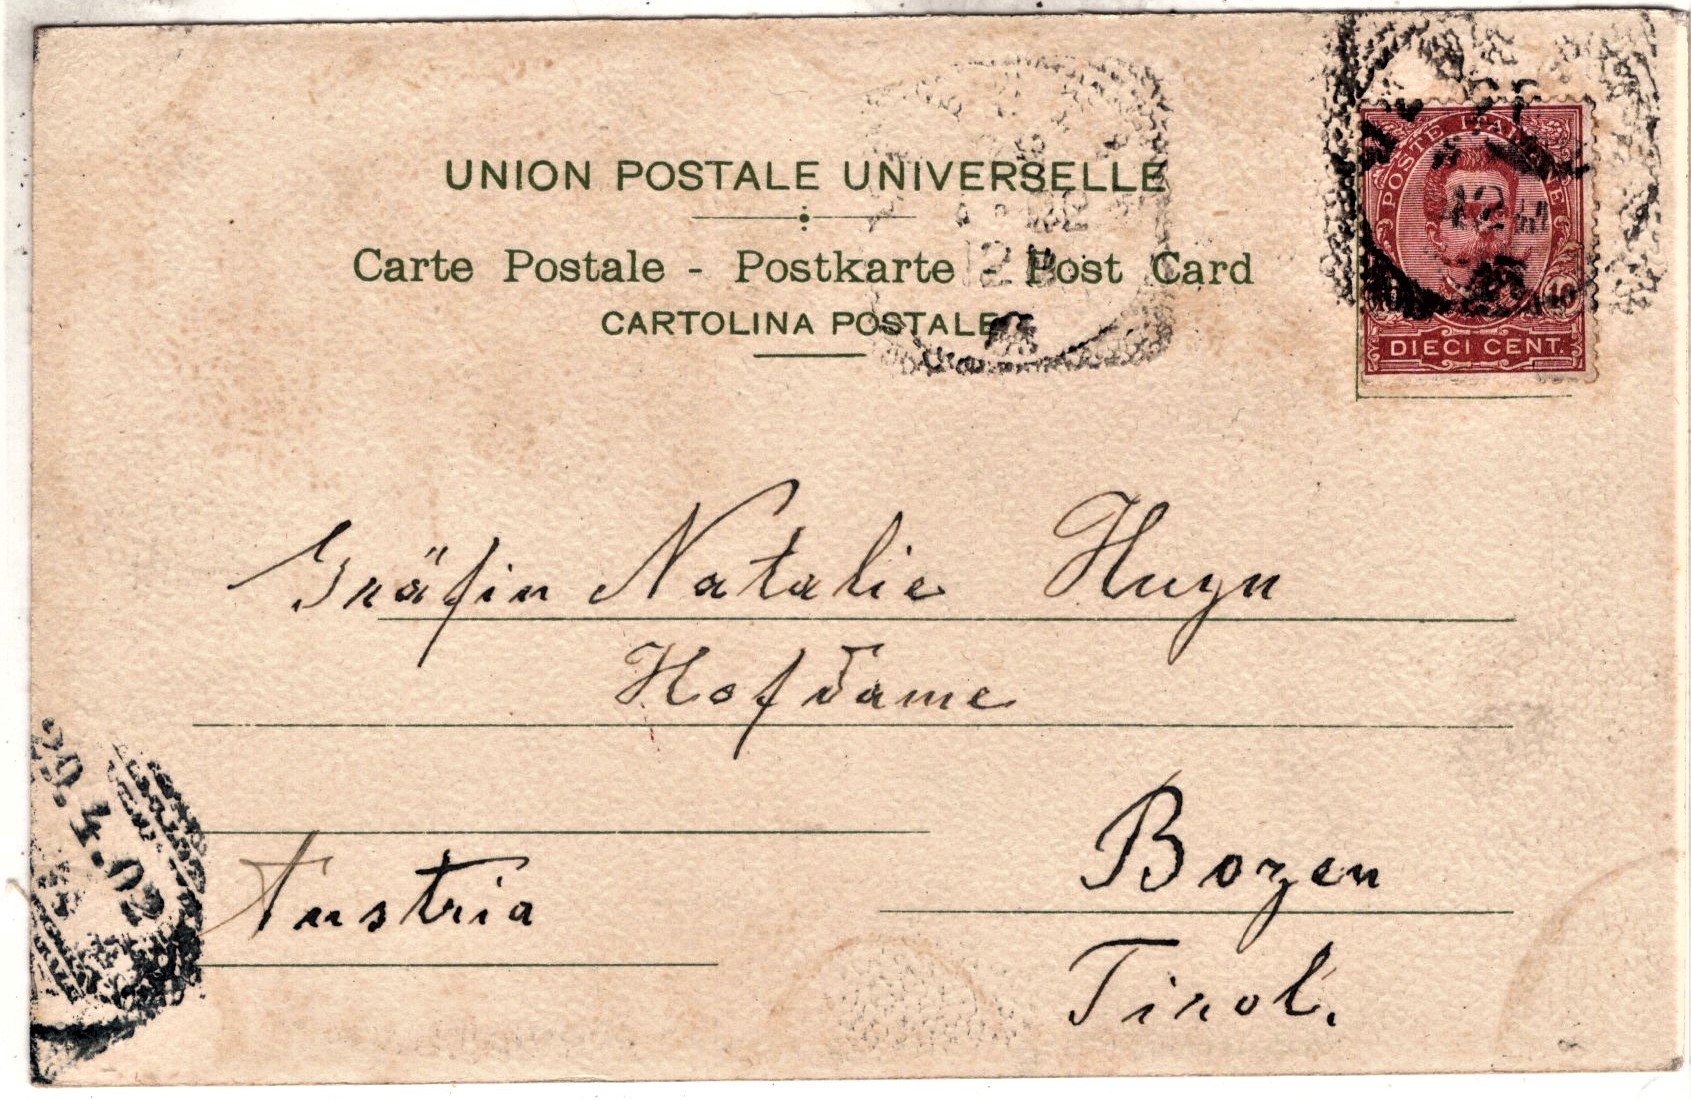 UNION POSTALE UNIVERSELLE
Carte Postale - Postkarte - Post Card
CARTOLINA POSTALE
POSTE ITALIANE
12
10
DIECI CENT.
Gräfin Natalie Huyn
Hofdame
Bozen
Austria
Tirol.
29.4.02